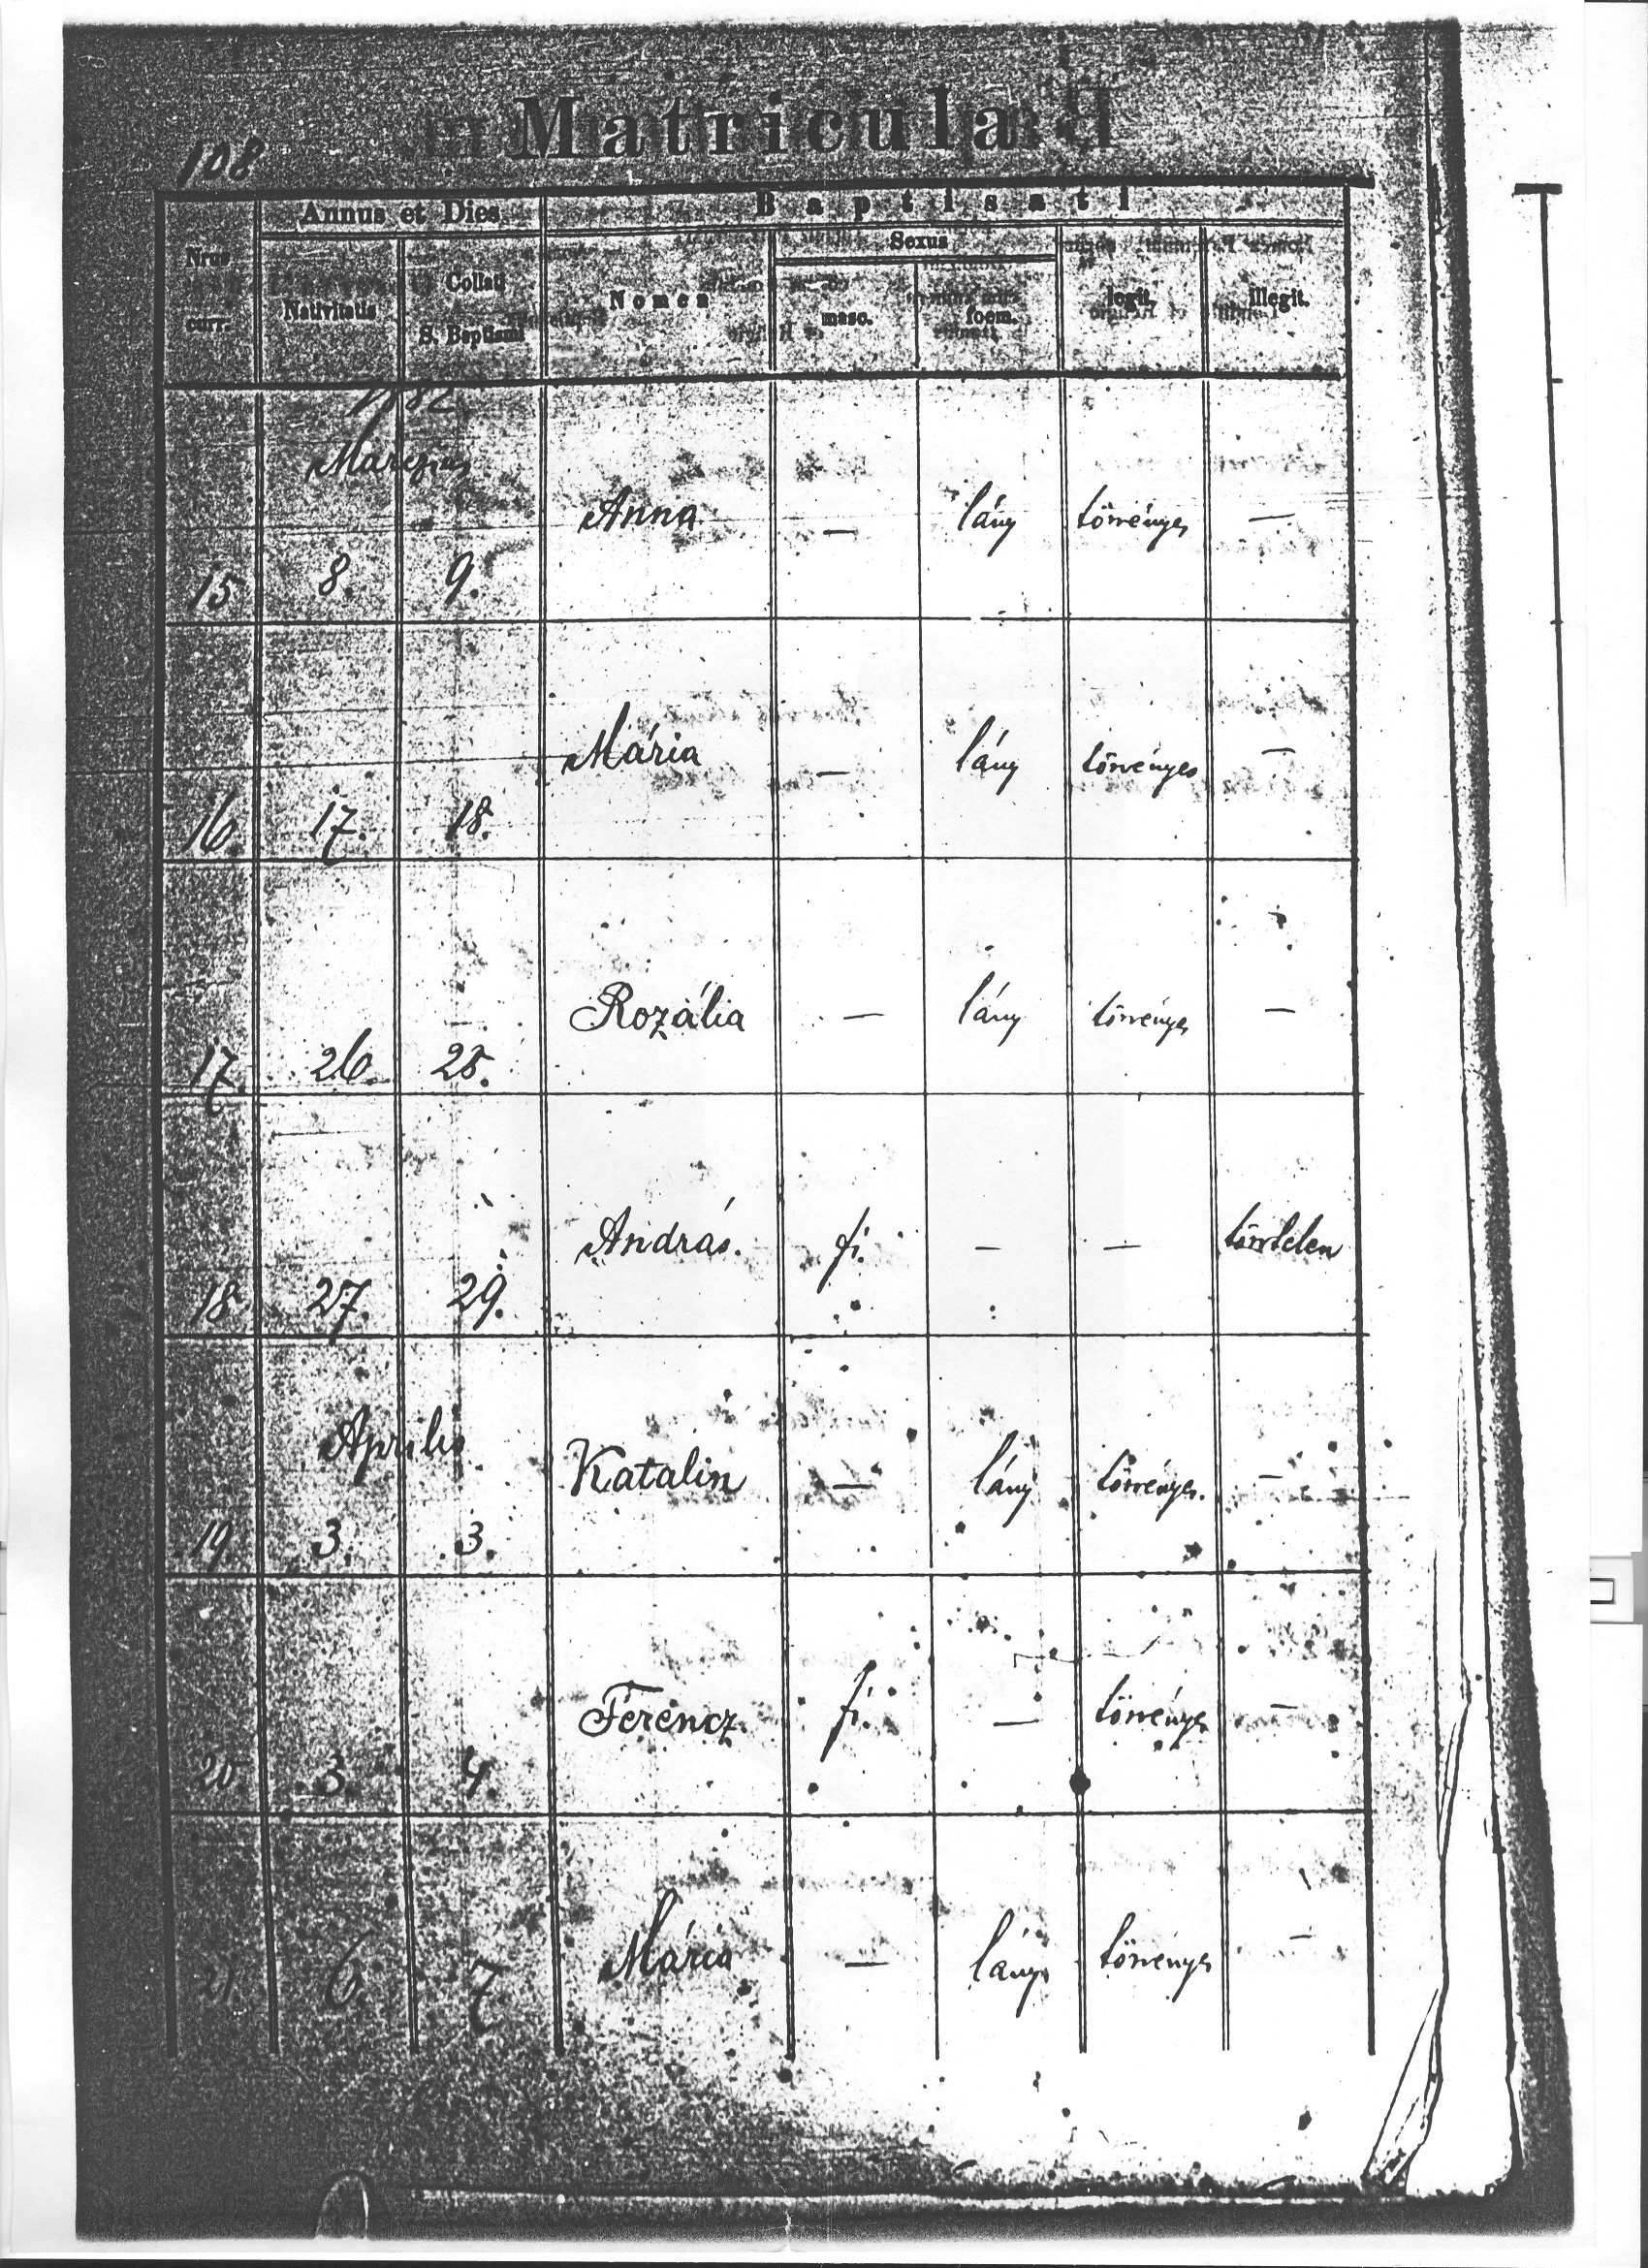 108
Matricula
Annus et Dies
Baptisati
Nrus curr.
Nativitatis
Collati S. Baptismi
Nomen
Sexus
masc.
foem.
legit.
illegit.
1882
Marczius
15 8. 9. Anna — lány törvényes —
16. 17. 18. Mária — lány törvényes —
17. 26. 28. Rozália — lány törvényes —
18 27. 29. András. fi. — — törvtelen
Aprilis
19. 3. 3. Katalin — lány törvényes. —
20. 3. 4. Ferencz fi. — törvényes —
21. 6. 7 Mária — lány törvényes —